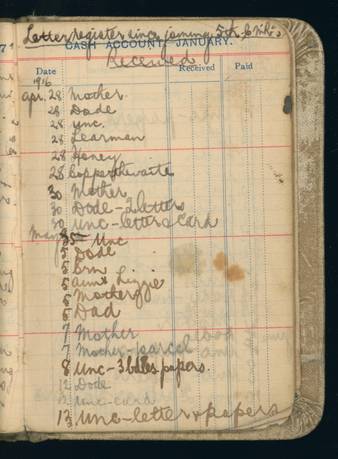 Letter register since joining 5th C.M.R.s
CASH ACCOUNT, JANUARY.
Received
Date Received Paid
1916
Apr. 28 Mother
28 Dode
28 Unc.
28 Learman
28 Honey
28 Copperthwaite
30 Mother
30 Dode - 2 letters
30 Unc - letter & card
May 5 Unc
Dode
Ern
Aunt Lizzie
6 Mother
6 Dad
7 Mother
7 Mother - parcel
8 Unc - 3 papers.
12 Dode
12 Unc - card
13 Unc - letter & papers